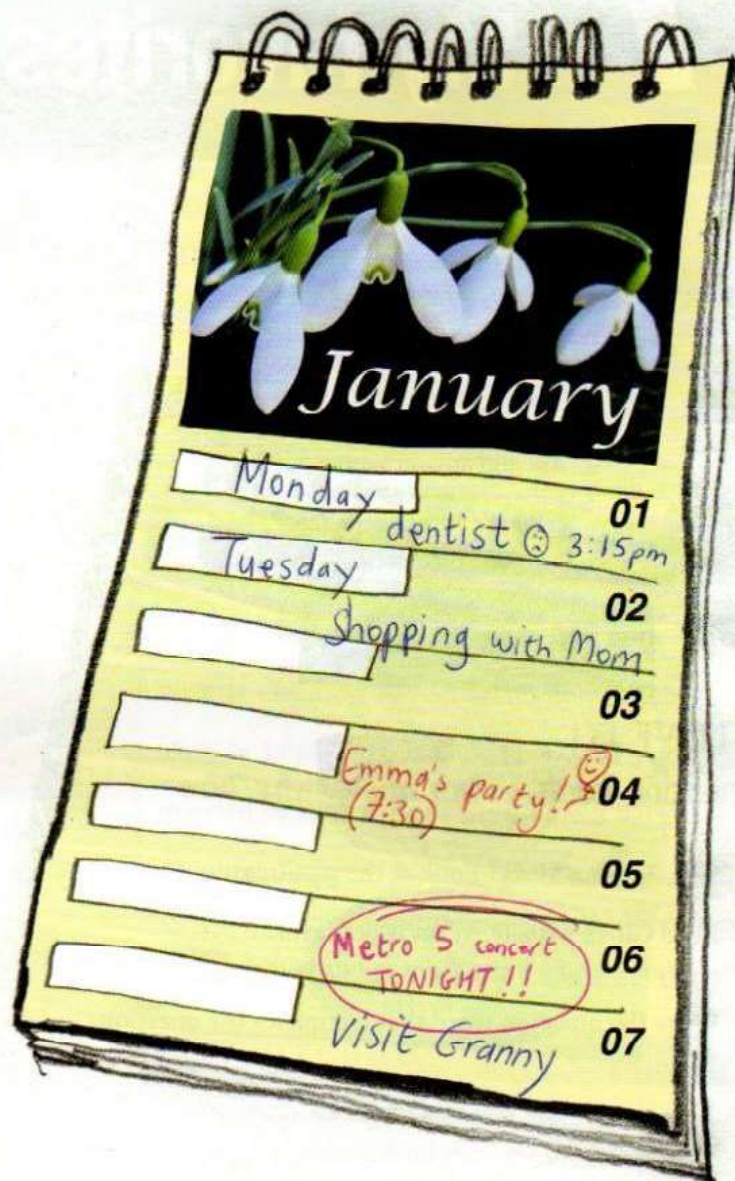 January
Monday 01
dentist 3:15pm
Tuesday 02
Shopping with Mom
03
Emma's party! 04
(7:30)
05
Metro 5 concert 06
TONIGHT!!
Visit Granny 07